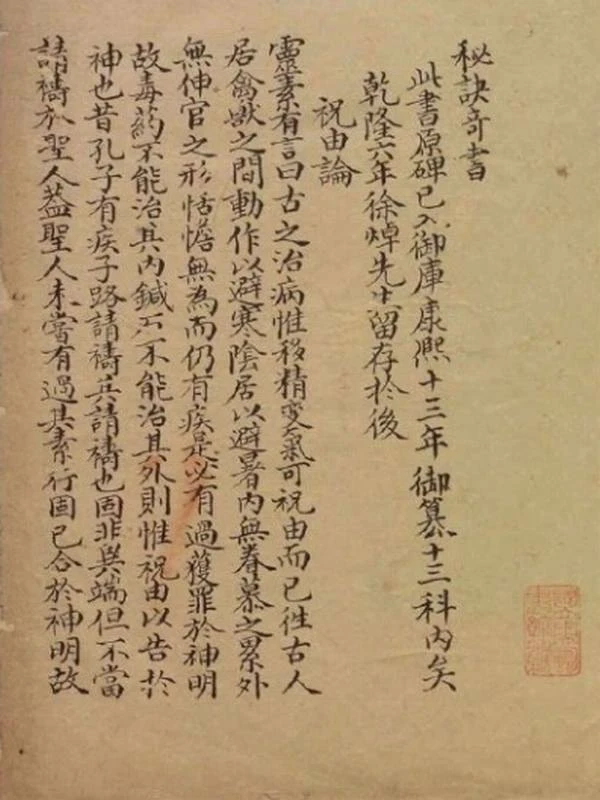 秘訣奇書
此書原碑已入御庫康熙十三年御纂十三科內矣
乾隆六年徐焯先生留存於後
祝由論
靈素有言曰古之治病惟移精變氣可祝由而已徃古人
居禽獸之間動作以避寒陰居以避暑內無眷慕之累外
無伸官之形恬憺無為而仍有疾是必有過獲罪於神明
故毒药不能治其內鍼石不能治其外則惟祝由以告於
神也昔孔子有疾子路請禱其請禱也固非異端但不當
請禱於聖人蓋聖人未嘗有過其素行固已合於神明故